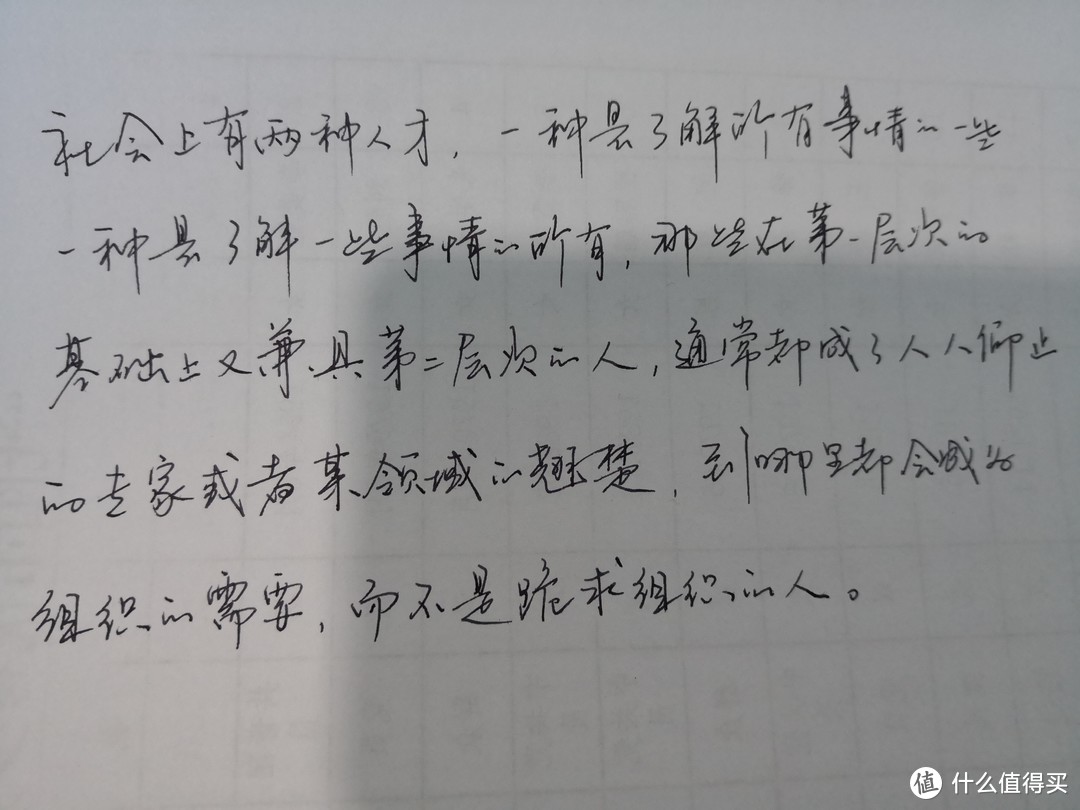 社会上有两种人才，一种是了解所有事情的一些
一种是了解一些事情的所有，那些在第一层次的
基础上又兼具第二层次的人，通常都成了人人仰止
的专家或者某领域的翘楚，到哪里都会成为
组织的需要，而不是跪求组织的人。
值 什么值得买